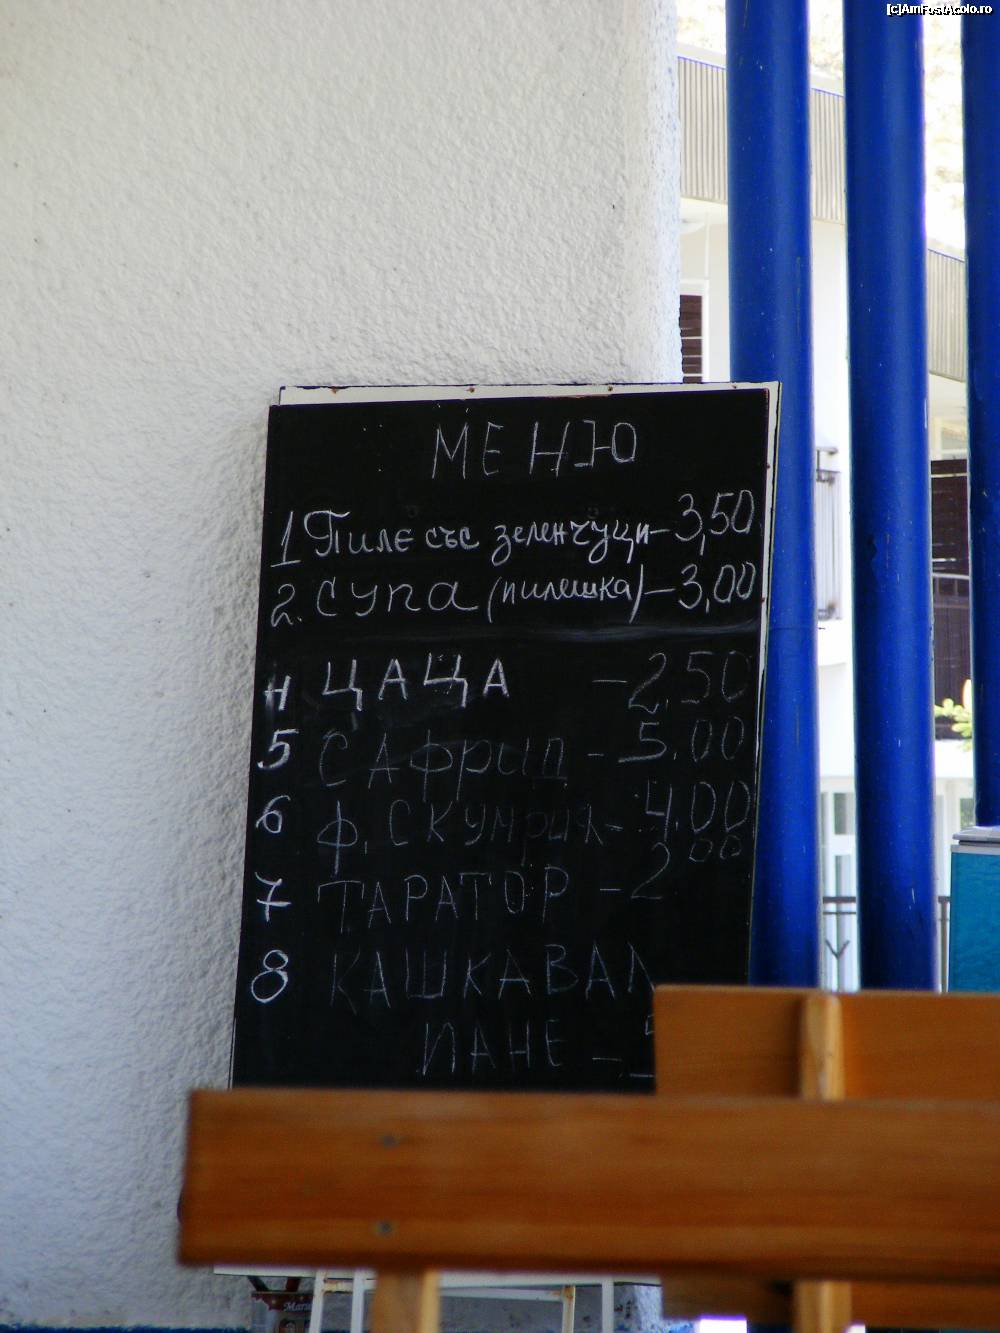 [c]AmFostAcolo.ro
МЕНЮ
1 Пиле със зеленчуци - 3,50
2. супа (пилешка) - 3,00
4 ЦАЦА - 2,50
5 САФРИД - 5.00
6 Ф. СКУМРИЯ - 4.00
7 ТАРАТОР - 2 00
8 КАШКАВАЛ
ПАНЕ -